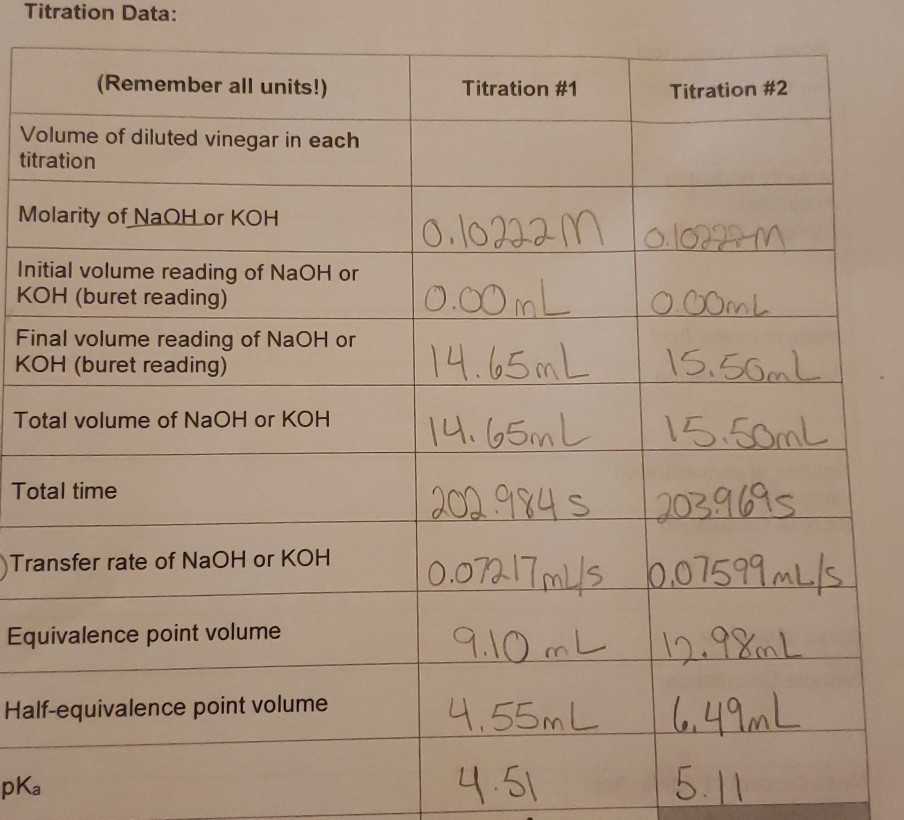 Titration Data:
(Remember all units!) Titration #1 Titration #2
Volume of diluted vinegar in each
titration
Molarity of NaOH or KOH 0.10222M 0.10222M
Initial volume reading of NaOH or
KOH (buret reading) 0.00mL 0.00mL
Final volume reading of NaOH or
KOH (buret reading) 14.65mL 15.50mL
Total volume of NaOH or KOH 14.65mL 15.50mL
Total time 202.984 s 203.969s
Transfer rate of NaOH or KOH 0.07217mL/s 0.07599mL/s
Equivalence point volume 9.10 mL 12.98mL
Half-equivalence point volume 4.55mL 6.49mL
pKa 4.51 5.11